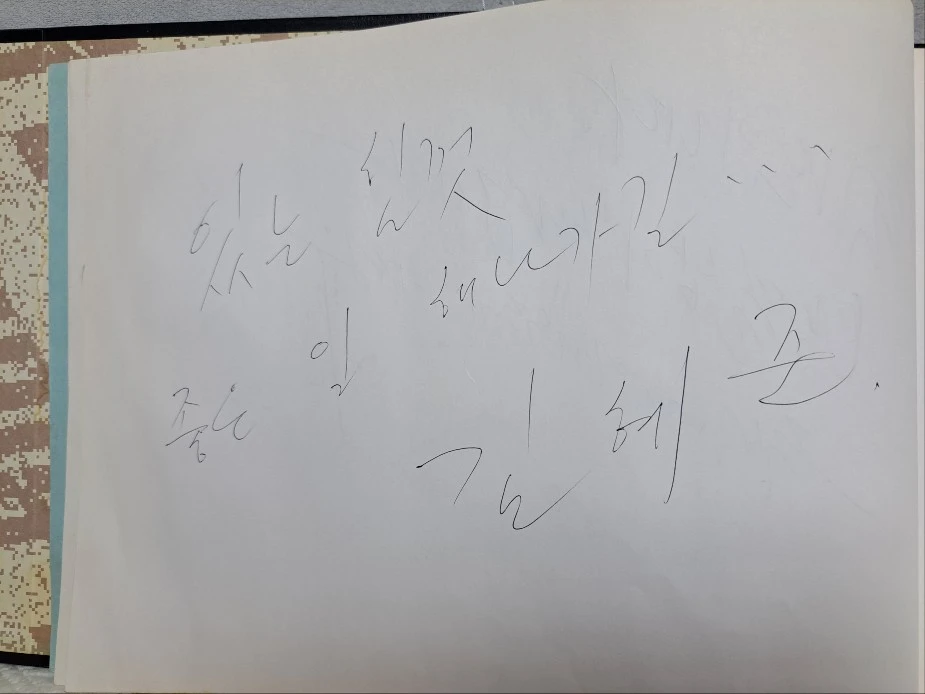 있는 힘껏
좋은 일 해나가길 ...
김혜준.